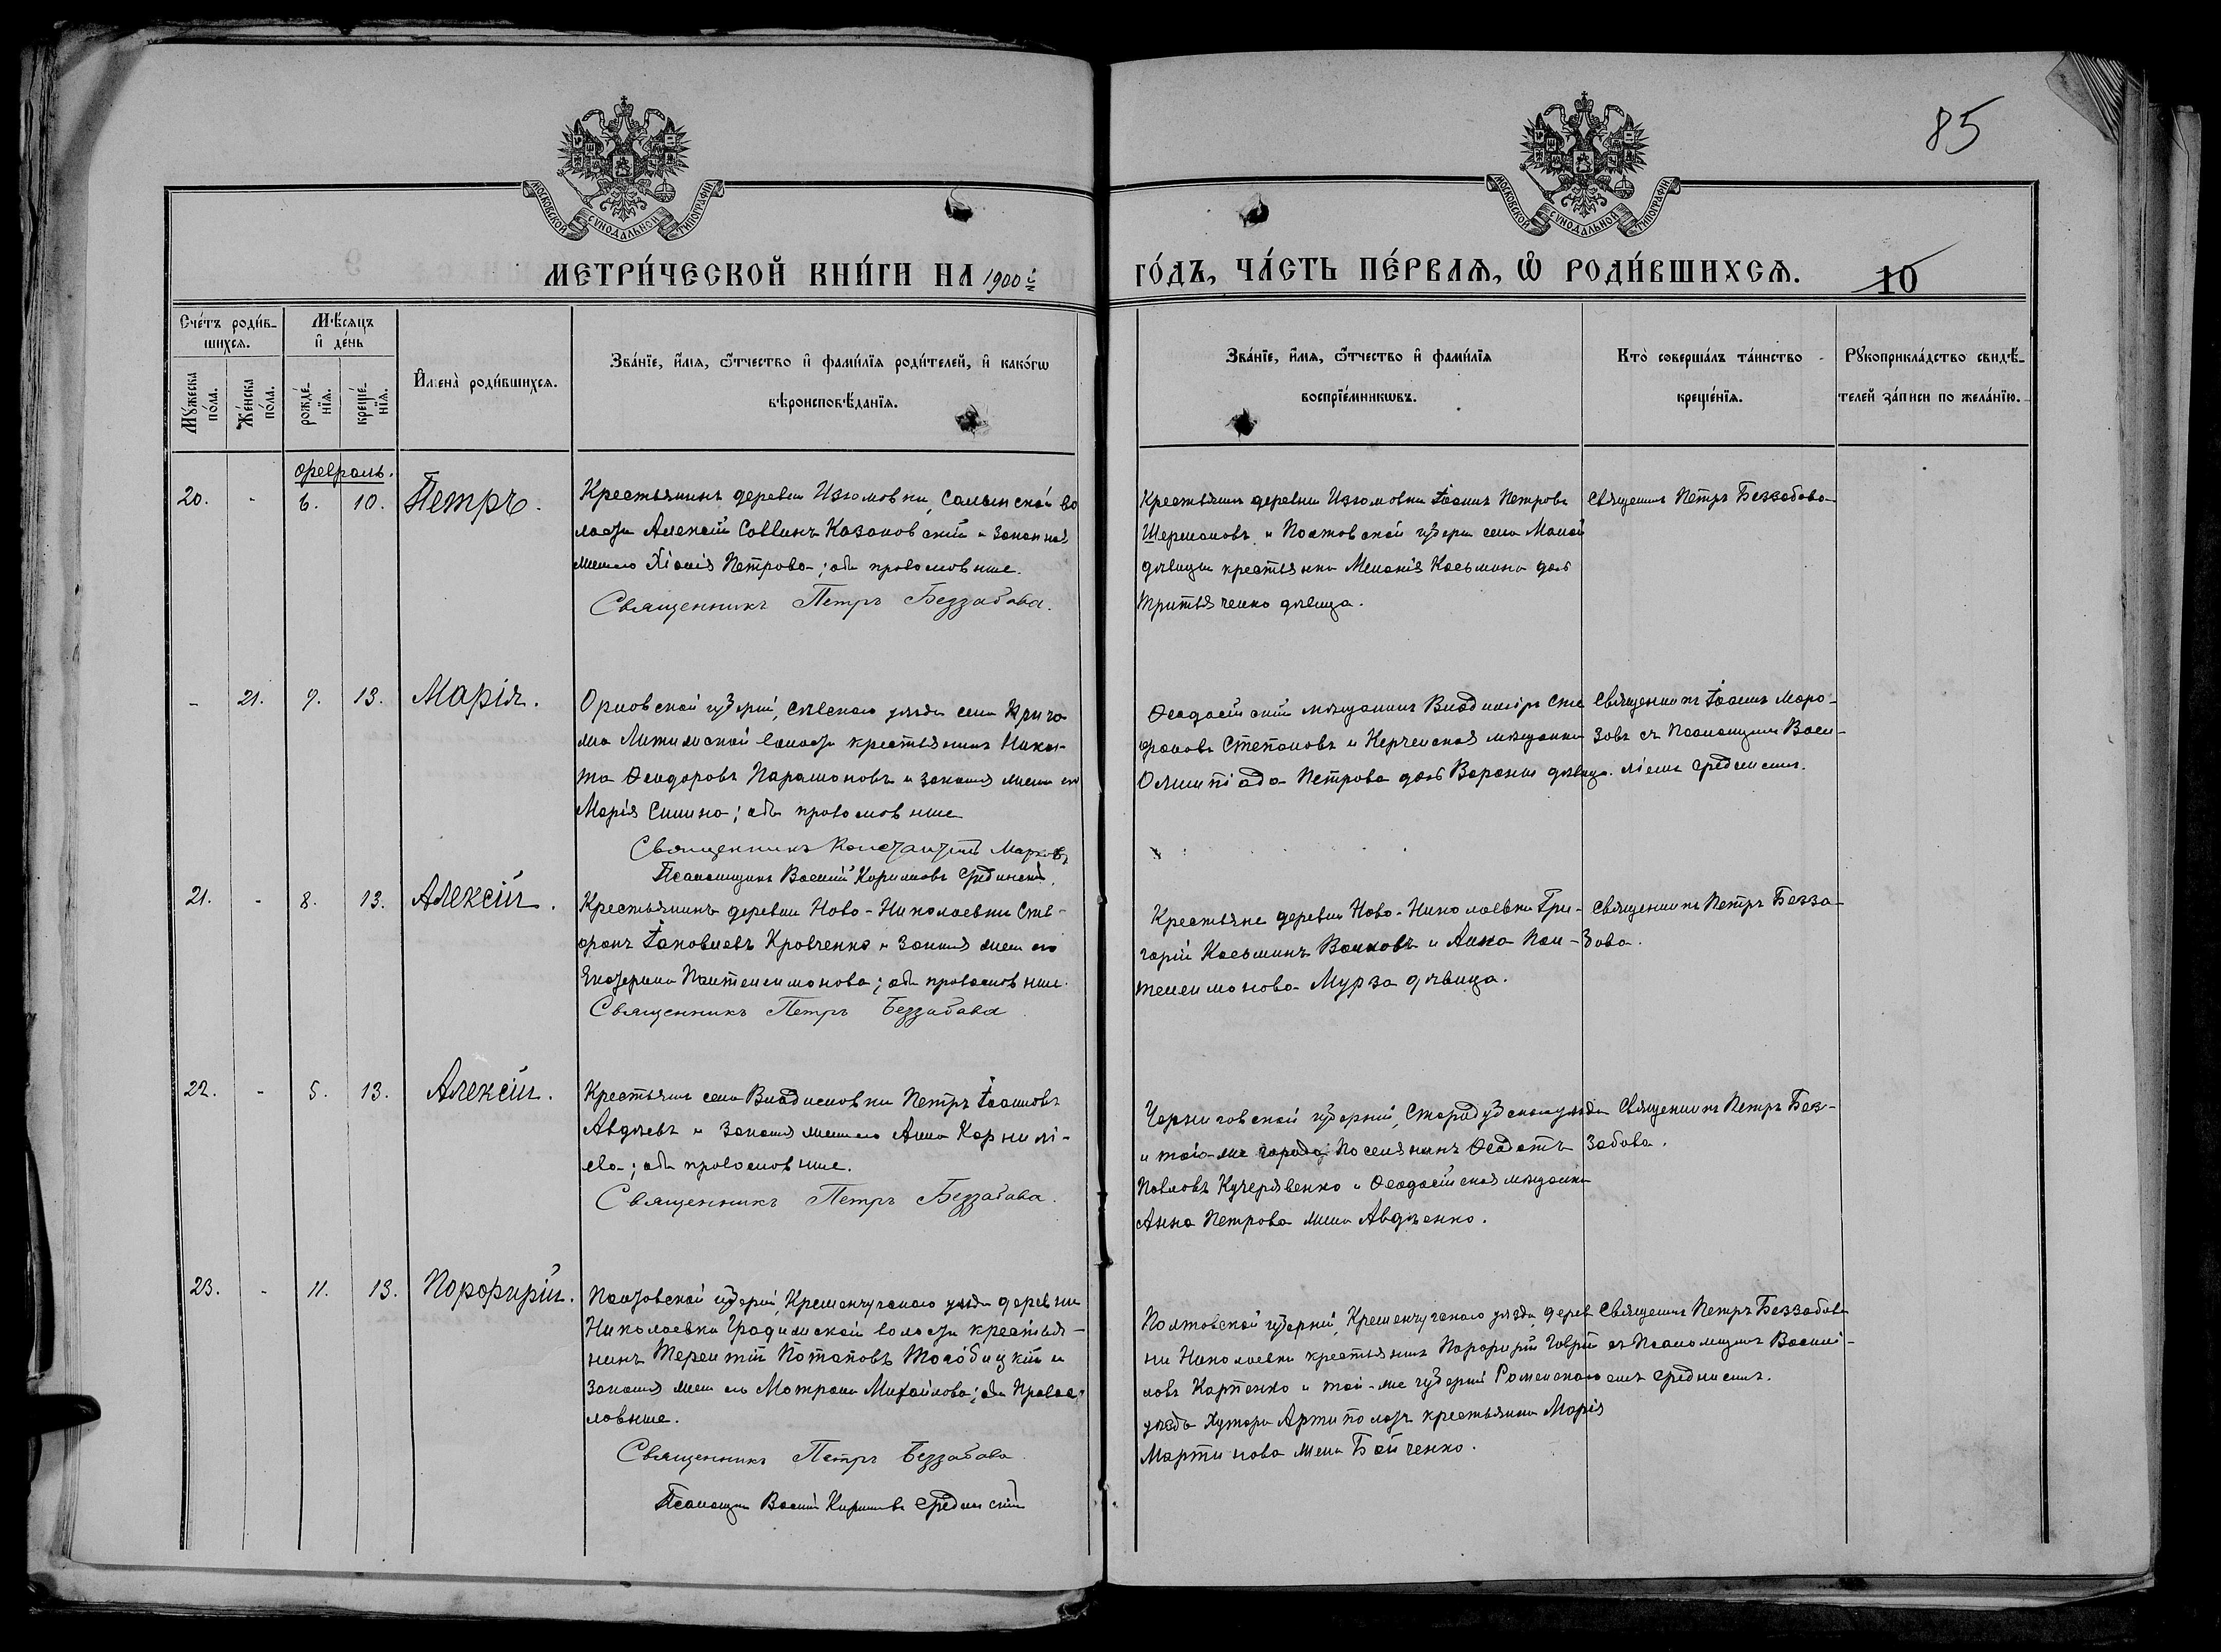 85
МОСКОВСКОЙ СѴНОДАЛЬНОЙ ТИПОГРАФІИ
МОСКОВСКОЙ СѴНОДАЛЬНОЙ ТИПОГРАФІИ
МЕТРИ́ЧЕСКОЙ КНИ́ГИ НА 1900й
ГО́ДЪ, ЧА́СТЬ ПЕ́РВАѦ, Ѡ РОДИ́ВШИХСѦ.
10
Сче́тъ роди́в-
шихсѧ.
Мѣ́сѧцъ
и҆ де́нь
Мꙋ́жеска
по́ла.
Же́нска
по́ла.
рожде́-
нїѧ.
креще́-
нїѧ.
И҆мена̀ роди́вшихсѧ.
Зва́нїе, и҆́мѧ, ѻ҆́тчество и҆ фами́лїѧ роди́телей, и҆ како́гѡ
вѣроисповѣ́данїѧ.
Зва́нїе, и҆́мѧ, ѻ҆́тчество и҆ фами́лїѧ
воспрїе́мникѡвъ.
Кто̀ соверша́лъ та́инство
креще́нїѧ.
Рꙋкоприкла́дство свидѣ́-
телей за́писи по жела́нїю.
Февраль.
20. - 6. 10. Петръ.
Крестьянинъ деревни Изюмовки, Салынской во
лости Алексій Саввинъ Казановскій и законная
жена его Хіонія Петрова; оба православные.
Священникъ Петръ Беззабава.
Крестьянинъ деревни Изюмовки Іоаннъ Петровъ
Шермановъ и Полтавской губерніи села Малой
дѣвицы крестьянка Меланія Косьмина дочь
Притьяченко дѣвица.
Священникъ Петръ Беззабава
- 21. 7. 13. Марія.
Орловской губерніи, Сѣвскаго уѣзда села
Литижской волости крестьянинъ Ники-
та Ѳеодоровъ Парамоновъ и законная жена его
Марія Симина; оба православные
Священникъ Константинъ Марковъ
Псаломщикъ Василій Кирилловъ Срединскій.
Ѳеодосійскій мѣщанинъ Владиміръ Сте
фановъ Степановъ и Керченская мѣщанка
Олимпіада Петрова дочь Воронии дѣвица.
Священникъ Іоаннъ Моро-
зовъ съ Псаломщикомъ Васи-
ліемъ Срединскимъ.
21. - 8. 13. Алексій.
Крестьянинъ деревни Ново-Николаевки Сте-
фанъ Іаковлевъ Кравченко и законная жена его
Екатерина Пантелеимонова; оба православные.
Священникъ Петръ Беззабава
Крестьяне деревни Ново-Николаевки Гри-
горій Косьминъ Волковъ и Анна Пан-
телеимонова Мурза дѣвица.
Священникъ Петръ Безза-
бава.
22. - 5. 13. Алексій.
Крестьянинъ села Владиславовки Петръ Іоанновъ
Авдѣевъ и законная жена его Анна Корнилі-
ева; оба православные.
Священникъ Петръ Беззабава.
Черниговской губерніи, Стародубскаго уѣзда
и того-же города поселянинъ Ѳеодотъ
Павловъ Кучерявенко и Ѳеодосійская мѣщанка
Анна Петрова жена Авдѣенко.
Священникъ Петръ Без-
забава.
23. - 11. 13. Порфирій.
Полтавской губерніи, Кременчугскаго уѣзда деревни
Николаевки Градижской волости крестья-
нинъ Терентій Потаповъ и
законная жена его Матрона Михайлова; оба Правос-
лавные.
Священникъ Петръ Беззабава
Псаломщикъ Василій Кирилловъ Срединскій
Полтавской губерніи, Кременчугскаго уѣзда, дерев
ни Николаевки крестьянинъ Порфирій Гаврі
ловъ Карпенко и той-же губерніи Роменскаго
уѣзда Хутора Артиполотъ крестьянка Марія
Мартинова жена Бойченко.
Священникъ Петръ Беззабава
съ Псаломщикомъ Василі-
емъ Срединскимъ.